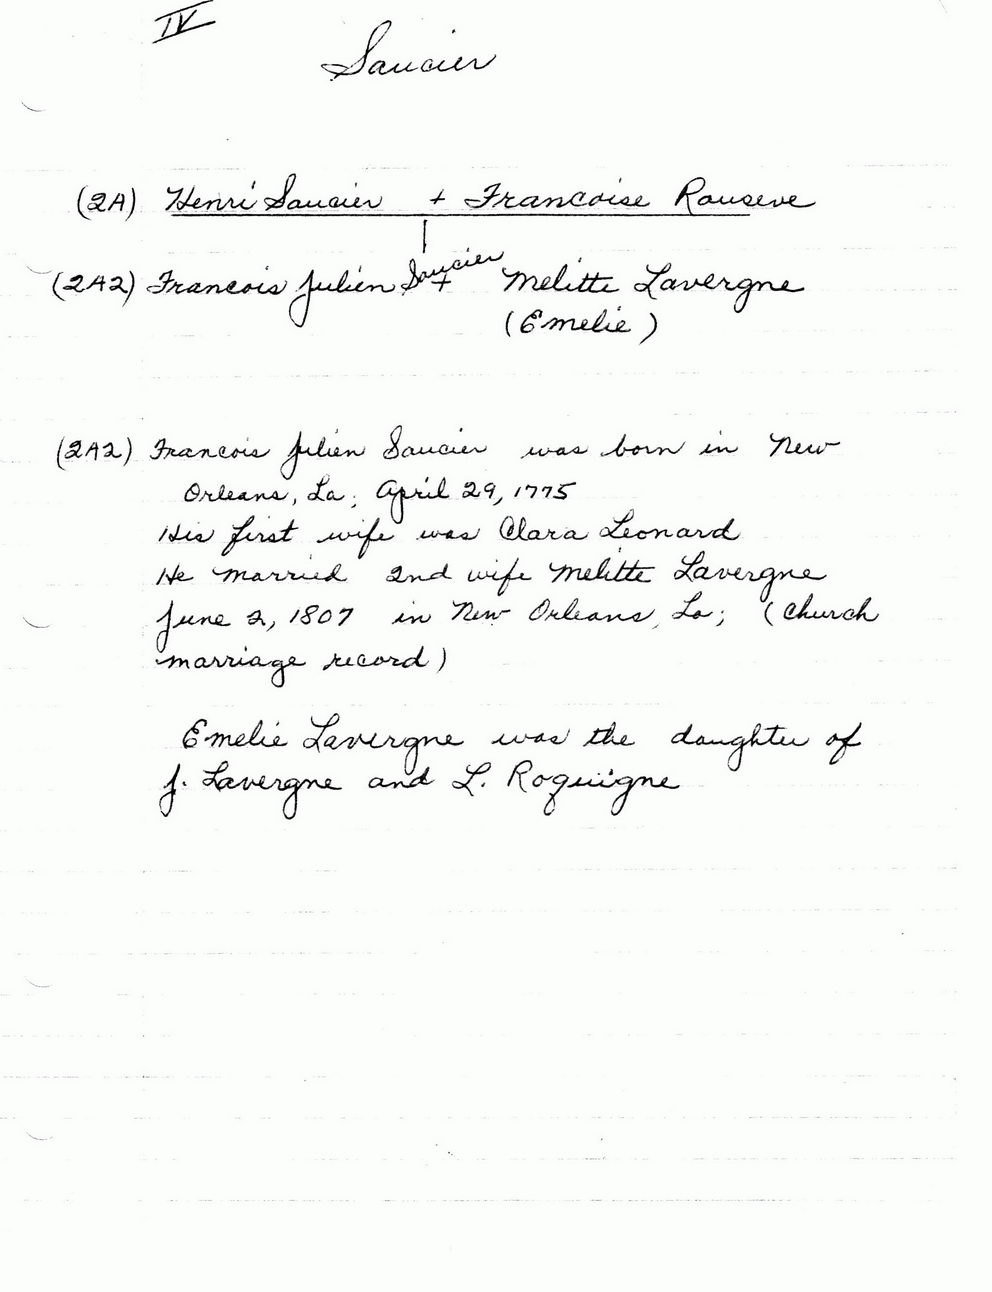 IV
Saucier
(2A) Henri Saucier + Francoise Rouseve
(2A2) Francois Julien Saucier + Melitte Lavergne
(Emelie)
(2A2) Francois Julien Saucier was born in New
Orleans, La; April 29, 1775
His first wife was Clara Leonard
He married 2nd wife Melitte Lavergne
June 2, 1807 in New Orleans, La; (Church
marriage record)
Emelie Lavergne was the daughter of
J. Lavergne and L. Roquigne